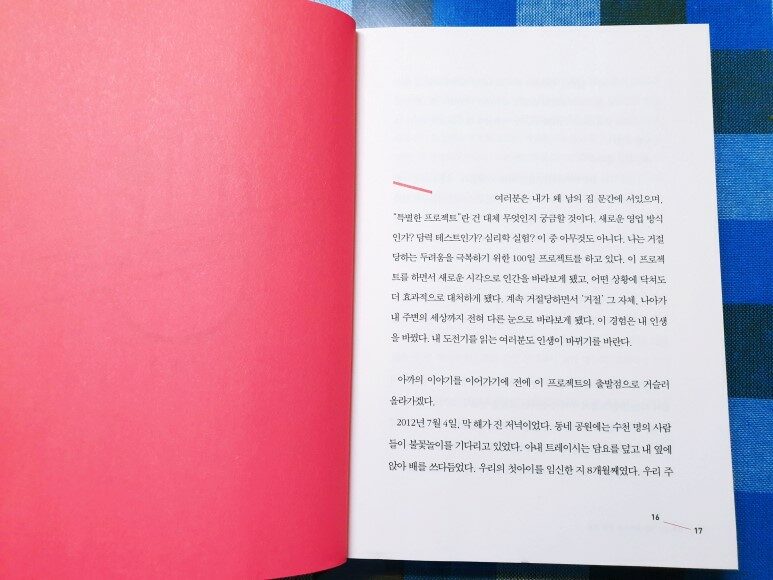 여러분은 내가 왜 남의 집 문간에 서있으며,
"특별한 프로젝트"란 건 대체 무엇인지 궁금할 것이다. 새로운 영업 방식
인가? 담력 테스트인가? 심리학 실험? 이 중 아무것도 아니다. 나는 거절
당하는 두려움을 극복하기 위한 100일 프로젝트를 하고 있다. 이 프로젝
트를 하면서 새로운 시각으로 인간을 바라보게 됐고, 어떤 상황에 닥쳐도
더 효과적으로 대처하게 됐다. 계속 거절당하면서 '거절' 그 자체, 나아가
내 주변의 세상까지 전혀 다른 눈으로 바라보게 됐다. 이 경험은 내 인생
을 바꿨다. 내 도전기를 읽는 여러분도 인생이 바뀌기를 바란다.
아까의 이야기를 이어가기에 전에 이 프로젝트의 출발점으로 거슬러
올라가겠다.
2012년 7월 4일, 막 해가 진 저녁이었다. 동네 공원에는 수천 명의 사람
들이 불꽃놀이를 기다리고 있었다. 아내 트레이시는 담요를 덮고 내 옆에
앉아 배를 쓰다듬었다. 우리의 첫아이를 임신한 지 8개월째였다. 우리 주
16
17